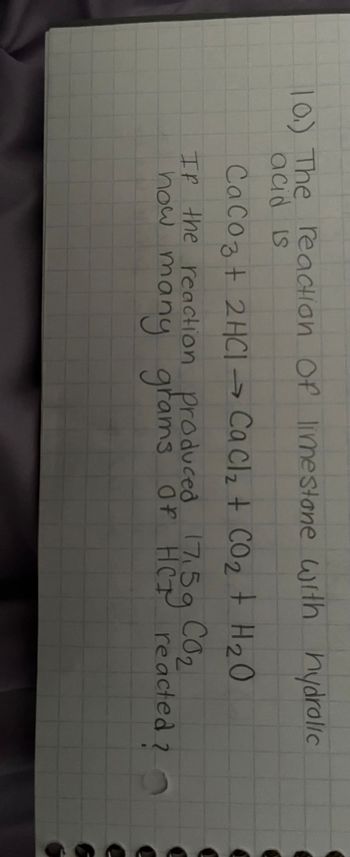 10.) The reaction of limestone with hydralic
acid is
CaCO3 + 2HCl → CaCl2 + CO2 + H2O
IF the reaction produced 17.5g CO2
how many grams of HCl reacted?